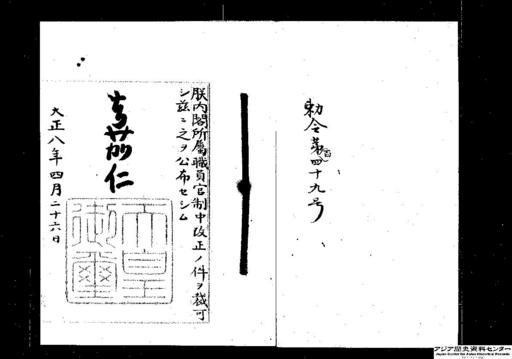 勅令第百四十九号
朕内閣所属職員官制中改正ノ件ヲ裁可
シ茲ニ之ヲ公布セシム
嘉仁
天皇御璽
大正八年四月二十六日
アジア歴史資料センター
Japan Center for Asian Historical Records